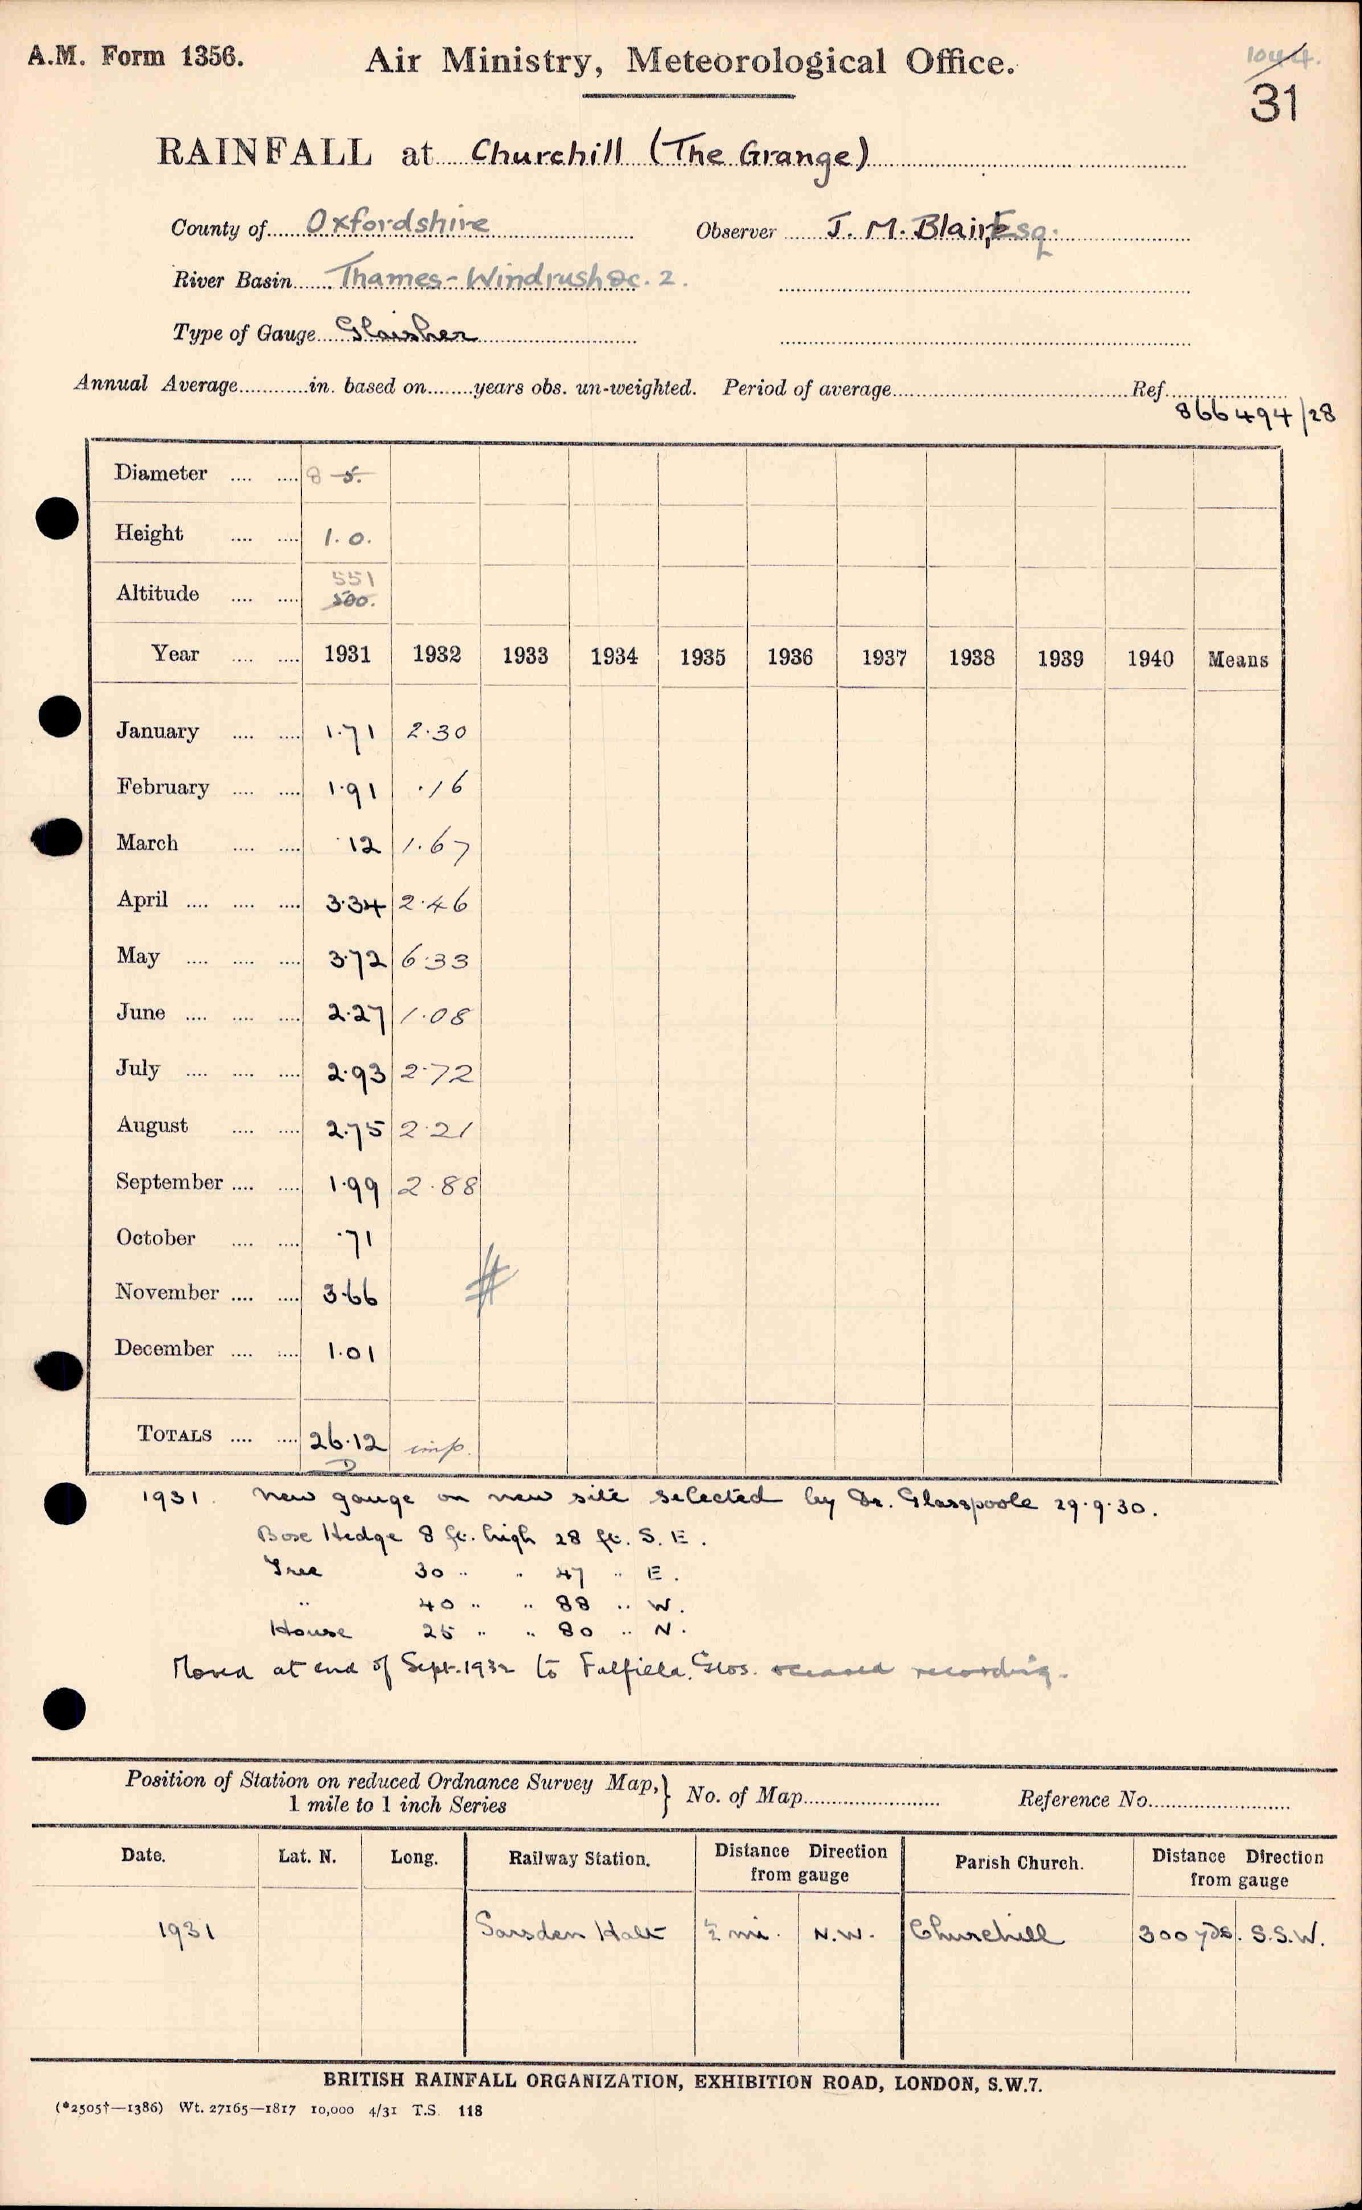 A.M. Form 1356.
Air Ministry, Meteorological Office.
1044.
31
RAINFALL at Churchill (The Grange)
County of Oxfordshire
Observer J. M. Blair, Esq.
River Basin Thames-Windrush &c. 2.
Type of Gauge Glaisher
Annual Average in. based on years obs. un-weighted. Period of average Ref. 866494/28
Diameter 8 5.
Height 1.0.
551
Altitude 500.
Year 1931 1932 1933 1934 1935 1936 1937 1938 1939 1940 Means
January 1.71 2.30
February 1.91 .16
March .12 1.67
April 3.34 2.46
May 3.72 6.33
June 2.27 1.08
July 2.93 2.72
August 2.75 2.21
September 1.99 2.88
October .71
November 3.66
December 1.01
TOTALS 26.12 imp.
D
1931. New gauge on new site selected by Dr. Glasspoole 29.9.30.
Box Hedge 8 ft. high 28 ft. S.E.
Tree 30 " " 47 " E.
" 40 " " 88 " W.
House 25 " " 80 " N.
Moved at end of Sept. 1932 to Falfield, Glos. ceased recording.
Position of Station on reduced Ordnance Survey Map, } No. of Map Reference No.
1 mile to 1 inch Series
Date. Lat. N. Long. Railway Station. Distance Direction from gauge Parish Church. Distance Direction from gauge
1931 Sarsden Halt ½ mi. N.W. Churchill 300 yds. S.S.W.
BRITISH RAINFALL ORGANIZATION, EXHIBITION ROAD, LONDON, S.W.7.
(*2505†—1386) Wt. 27165—1817 10,000 4/31 T.S. 118